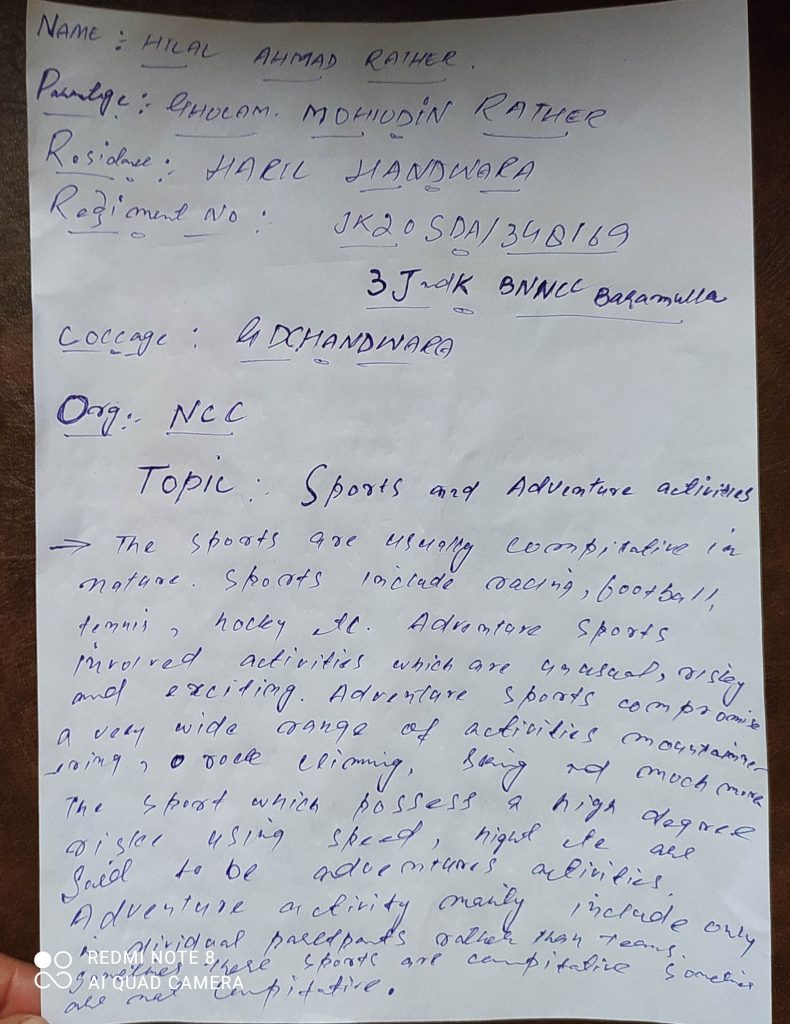 NAME : HILAL AHMAD RATHER.
Parentage : GHULAM. MOHIUDIN RATHER
Residance : HARIL HANDWARA
Regiment No : JK20SDA/348169
3 JndK BNNCC Baramulla
Coccage : GDCHANDWARA
Org:. NCC
Topic : Sports and Adventure activities
→ The sports are usually compitative in
nature. Sports include racing, football,
tennis, hocky etc. Adventure sports
involved activities which are unusual, risky
and exciting. Adventure sports compromise
a very wide range of activities mountaine-
ering, rock climing, sking nd much more
The sport which possess a high degree
riske using speed, hight etc are
Said to be adventures activities.
Adventure activity mainly include only
individual rather than teams.
sometimes these sports are compitative sometime
are not compitative.
REDMI NOTE 8
AI QUAD CAMERA